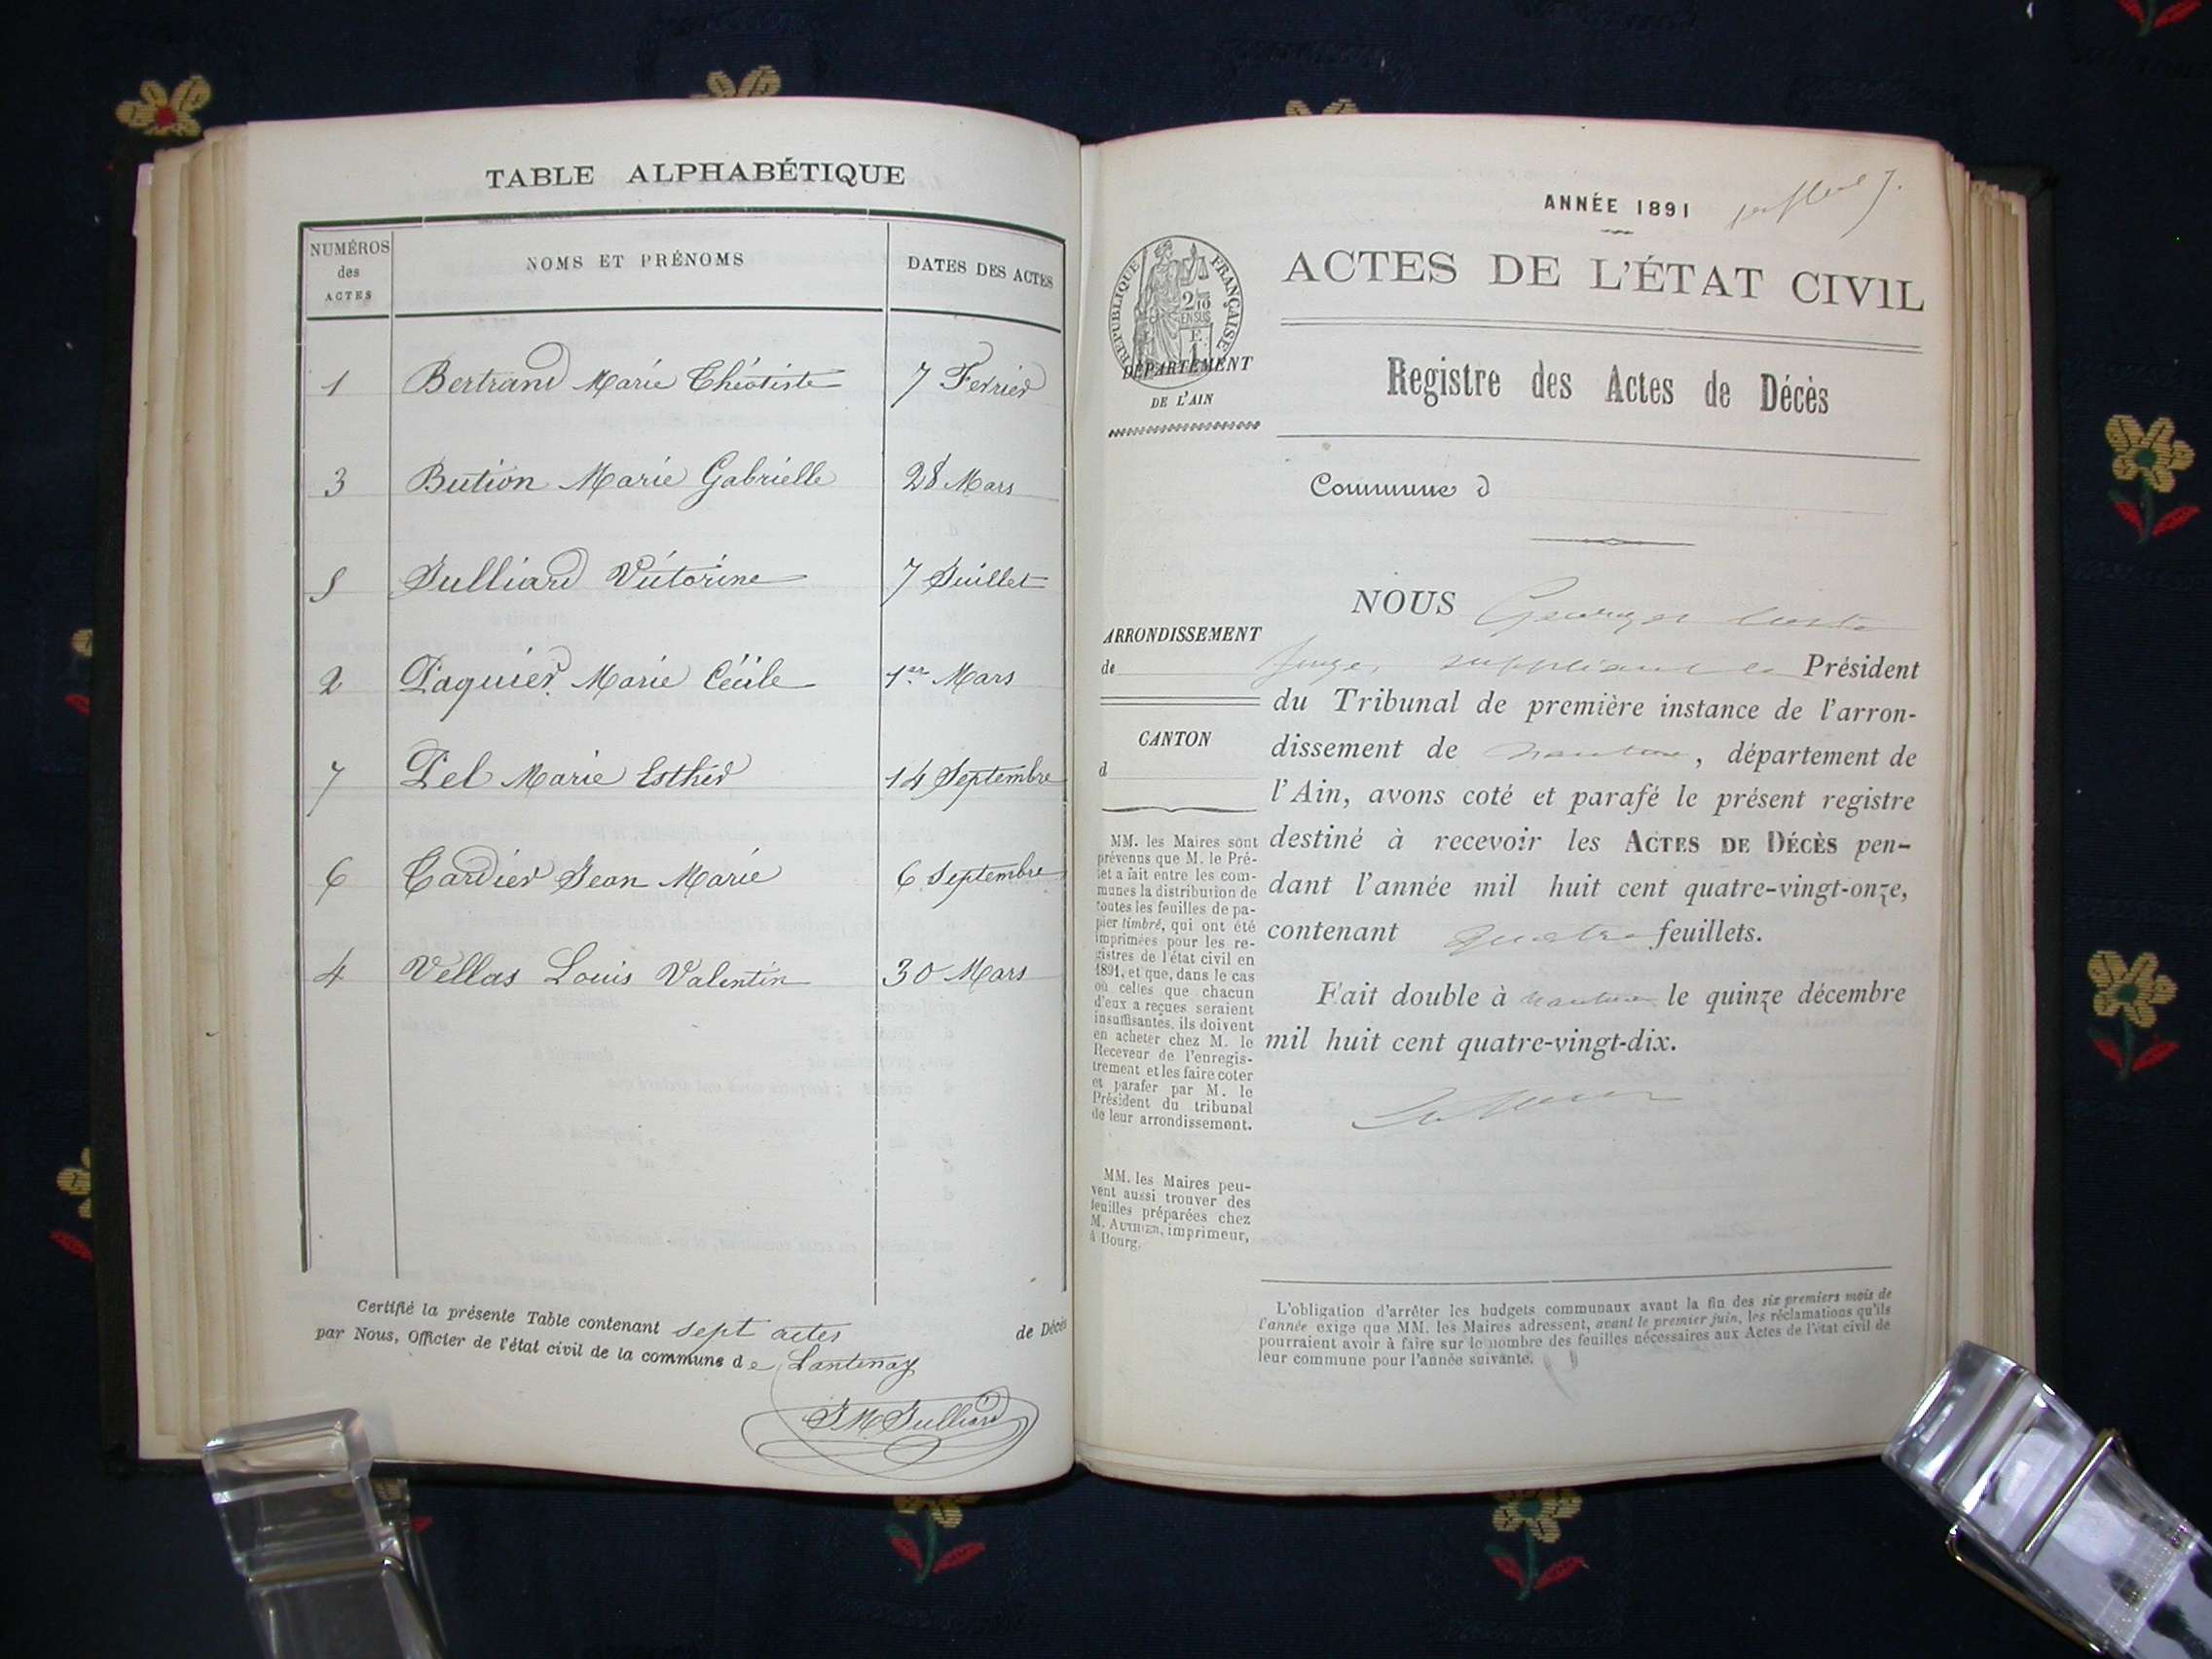 TABLE ALPHABÉTIQUE
NUMÉROS des ACTES
NOMS ET PRÉNOMS
DATES DES ACTES
1 Bertrand Marie Théotiste 7 Fevrier
3 Bution Marie Gabrielle 28 Mars
5 Julliard Victorine 7 Juillet
2 Paquier Marie Cécile 1er Mars
7 Pel Marie Esther 14 Septembre
6 Tardier Jean Marie 6 Septembre
4 Vellas Louis Valentin 30 Mars
Certifié la présente Table contenant sept actes de Décès
par Nous, Officier de l'état civil de la commune de Lantenay
JM Julliard
ANNÉE 1891
RÉPUBLIQUE FRANÇAISE
2/10
EN SUS
E
1
DÉPARTEMENT
DE L'AIN
ACTES DE L'ÉTAT CIVIL
Registre des Actes de Décès
Commune d
ARRONDISSEMENT
de
CANTON
d
MM. les Maires sont
prévenus que M. le Pré-
fet a fait entre les com-
munes la distribution de
toutes les feuilles de pa-
pier timbré, qui ont été
imprimées pour les re-
gistres de l'état civil en
1891, et que, dans le cas
où celles que chacun
d'eux a reçues seraient
insuffisantes, ils doivent
en acheter chez M. le
Receveur de l'enregis-
trement et les faire coter
et parafer par M. le
Président du tribunal
de leur arrondissement.
MM. les Maires peu-
vent aussi trouver des
feuilles préparées chez
M. AUTHIER, imprimeur,
à Bourg.
NOUS Georges
juge suppléant Président
du Tribunal de première instance de l'arron-
dissement de Nantua, département de
l'Ain, avons coté et parafé le présent registre
destiné à recevoir les ACTES DE DÉCÈS pen-
dant l'année mil huit cent quatre-vingt-onze,
contenant quatre feuillets.
Fait double à Nantua le quinze décembre
mil huit cent quatre-vingt-dix.
L'obligation d'arrêter les budgets communaux avant la fin des six premiers mois de
l'année exige que MM. les Maires adressent, avant le premier juin, les réclamations qu'ils
pourraient avoir à faire sur le nombre des feuilles nécessaires aux Actes de l'état civil de
leur commune pour l'année suivante.